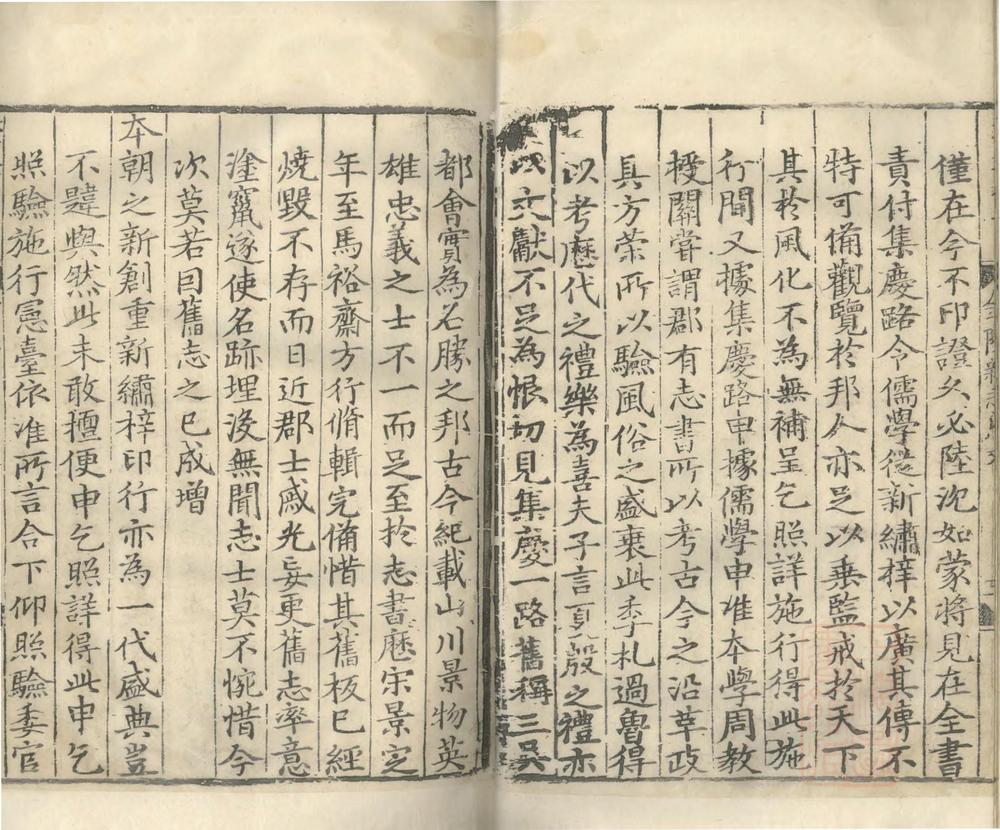 僅在今不印證久必陸沈如蒙將見在全書
責付集慶路令儒學從新繡梓以廣其傳不
特可備觀覽於邦人亦足以垂監戒於天下
其於風化不為無補呈乞照詳施行得此施
行間又據集慶路申據儒學申准本學周教
授關嘗謂郡有志書所以考古今之沿革政
具方策所以驗風俗之盛衰此季札過魯得
以考歷代之禮樂為喜夫子言夏殷之禮亦
以文獻不足為恨切見集慶一路舊稱三吳
都會實為名勝之邦古今紀載山川景物英
雄忠義之士不一而足至於志書歷宋景定
年至馬裕齋方行脩輯完備惜其舊板已經
燒毀不存而日近郡士戚光妄更舊志率意
塗竄遂使名跡埋沒無聞志士莫不惋惜今
次莫若因舊志之已成增
本朝之新創重新繡梓印行亦為一代盛典豈
不韙與然此未敢擅便申乞照詳得此申乞
照驗施行憲臺依准所言合下仰照驗委官